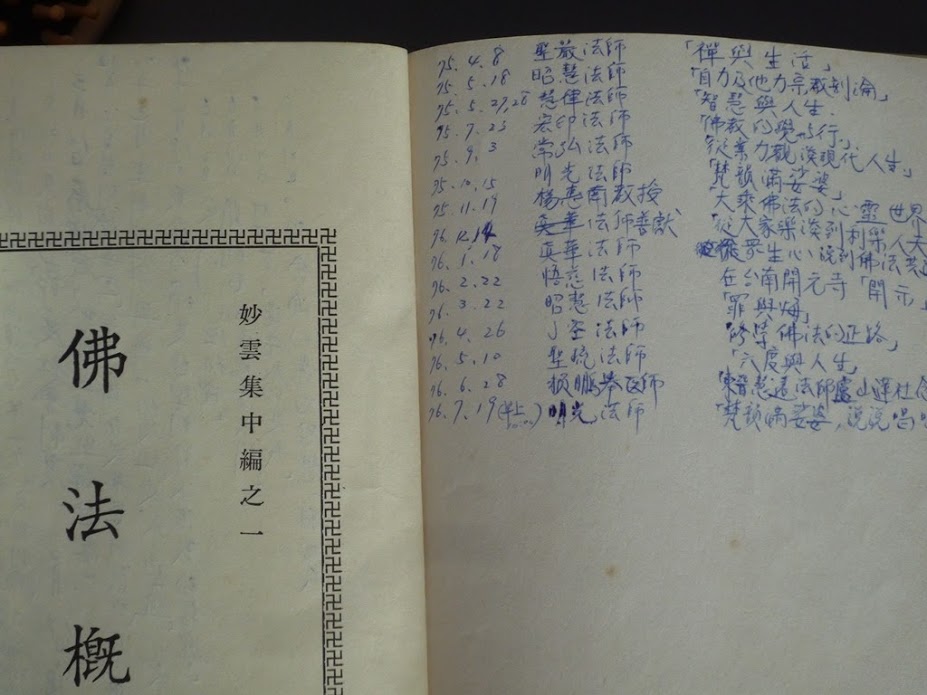 妙雲集中編之一
佛法概
75.4.8 聖嚴法師 「禪與生活」
75.5.18 昭慧法師 「自力及他力宗教剖論」
75.5.27,28 慧律法師 「智慧與人生.
75.7.23 宏印法師 「佛教的覺與行」
75.9.3 常弘法師 「從業力觀談現代人生」
明光法師 「梵韻滿娑婆」
75.10.15 楊惠南教授 大乘佛法的心靈世界
75.11.19 真華法師 「從大家樂談到利樂人天
76.1.18 真華法師 從眾生心說到佛法
76.2.22 悟慈法師 在台南開元寺「開示」
76.3.22 昭慧法師 「罪與悔」
76.4.26 法師 「修學佛法的正路」
76.5.10 法師 「六度與人生」
76.6.28 醫師 慧遠法師廬山蓮社
76.7.19 明光法師 「梵韻滿娑婆，說說唱